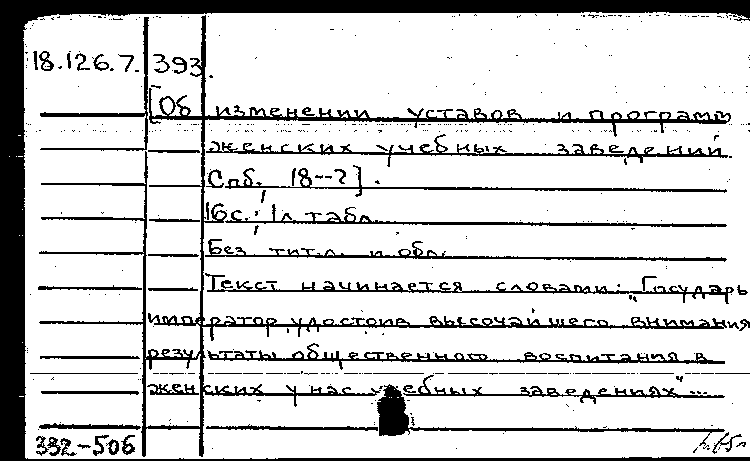 18.126.7. 393.
[Об изменении уставов и программ
женских учебных заведений
Спб., 18--?].
16 с.; 1 л. табл.
Без тит. л. и обл.
Текст начинается словами: "Государь
император, удостоив высочайшего внимания
результаты общественного воспитания в
женских у нас учебных заведениях"...
332-506